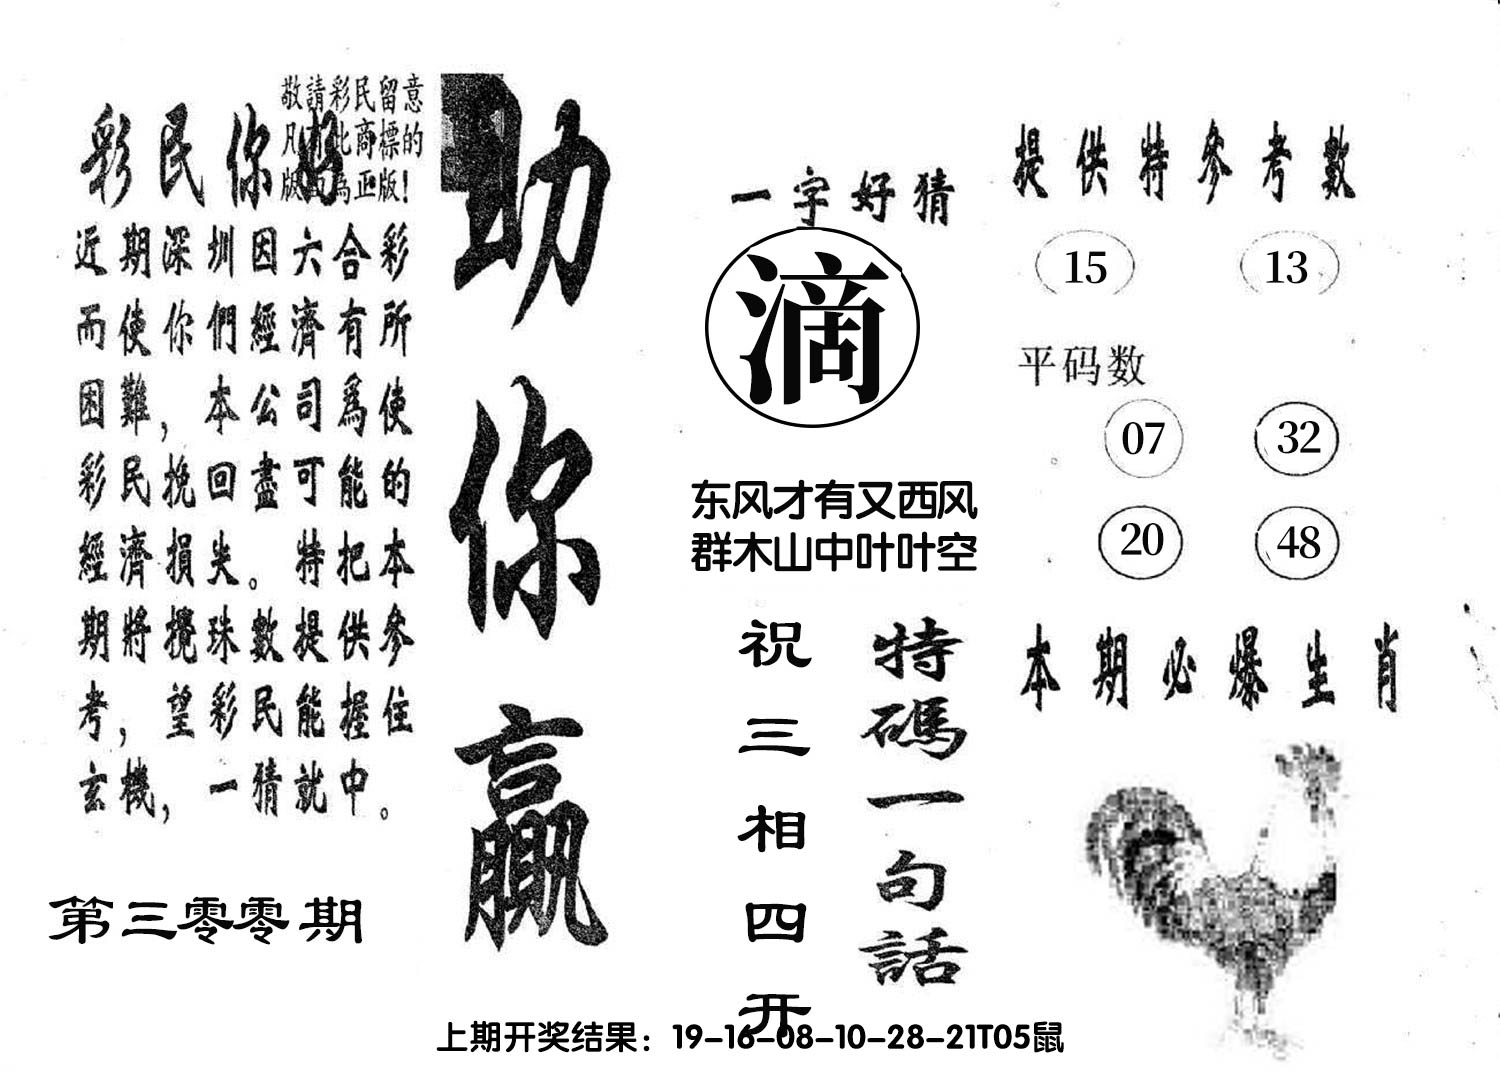 敬請彩民留意
凡有此商標的
版面為正版！
彩民你好
近期深圳因六合彩
而使你們經濟有所
困難，本公司爲使
彩民挽回盡可能的
經濟損失。特把本
期將攪珠數提供參
考，望彩民能握住
玄機，一猜就中。
第三零零期
助你贏
一字好猜
滴
东风才有又西风
群木山中叶叶空
特碼一句話
祝三相四开
提供特參考數
15 13
平码数
07 32
20 48
本期必爆生肖
上期开奖结果：19-16-08-10-28-21T05鼠